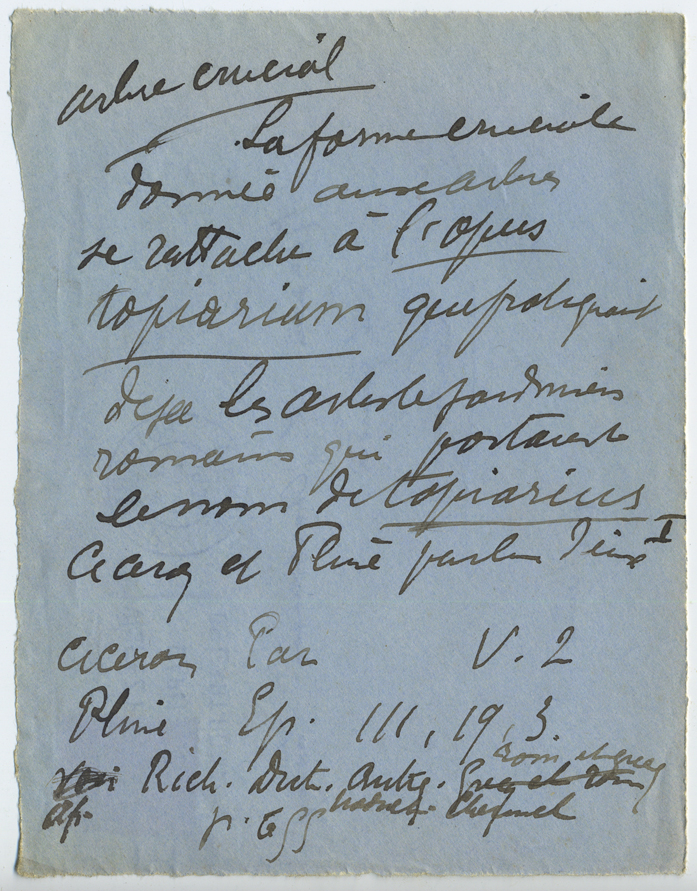 arbre crucial
La forme cruciale
donnée aux arbres
se rattache à l'opus
topiarium que pratiquait
déjà les arbres jardiniers
romains qui portaient
le nom de topiarius
Ciceron et Pline parlent d'eux I
Ciceron Par V. 2
Pline Ep. III, 19, 3.
rom. et grec
Rich. Dict. Antiq. Grec et rom
ap. traduct. Cheruel
p.